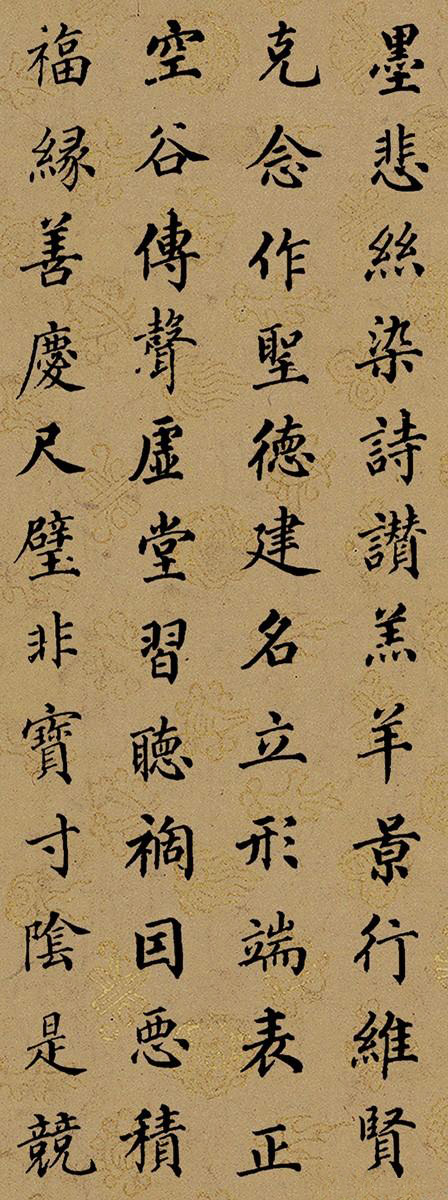 墨悲絲染詩讃羔羊景行維賢
克念作聖德建名立形端表正
空谷傳聲虛堂習聽禍因悪積
福緣善慶尺璧非寶寸陰是競